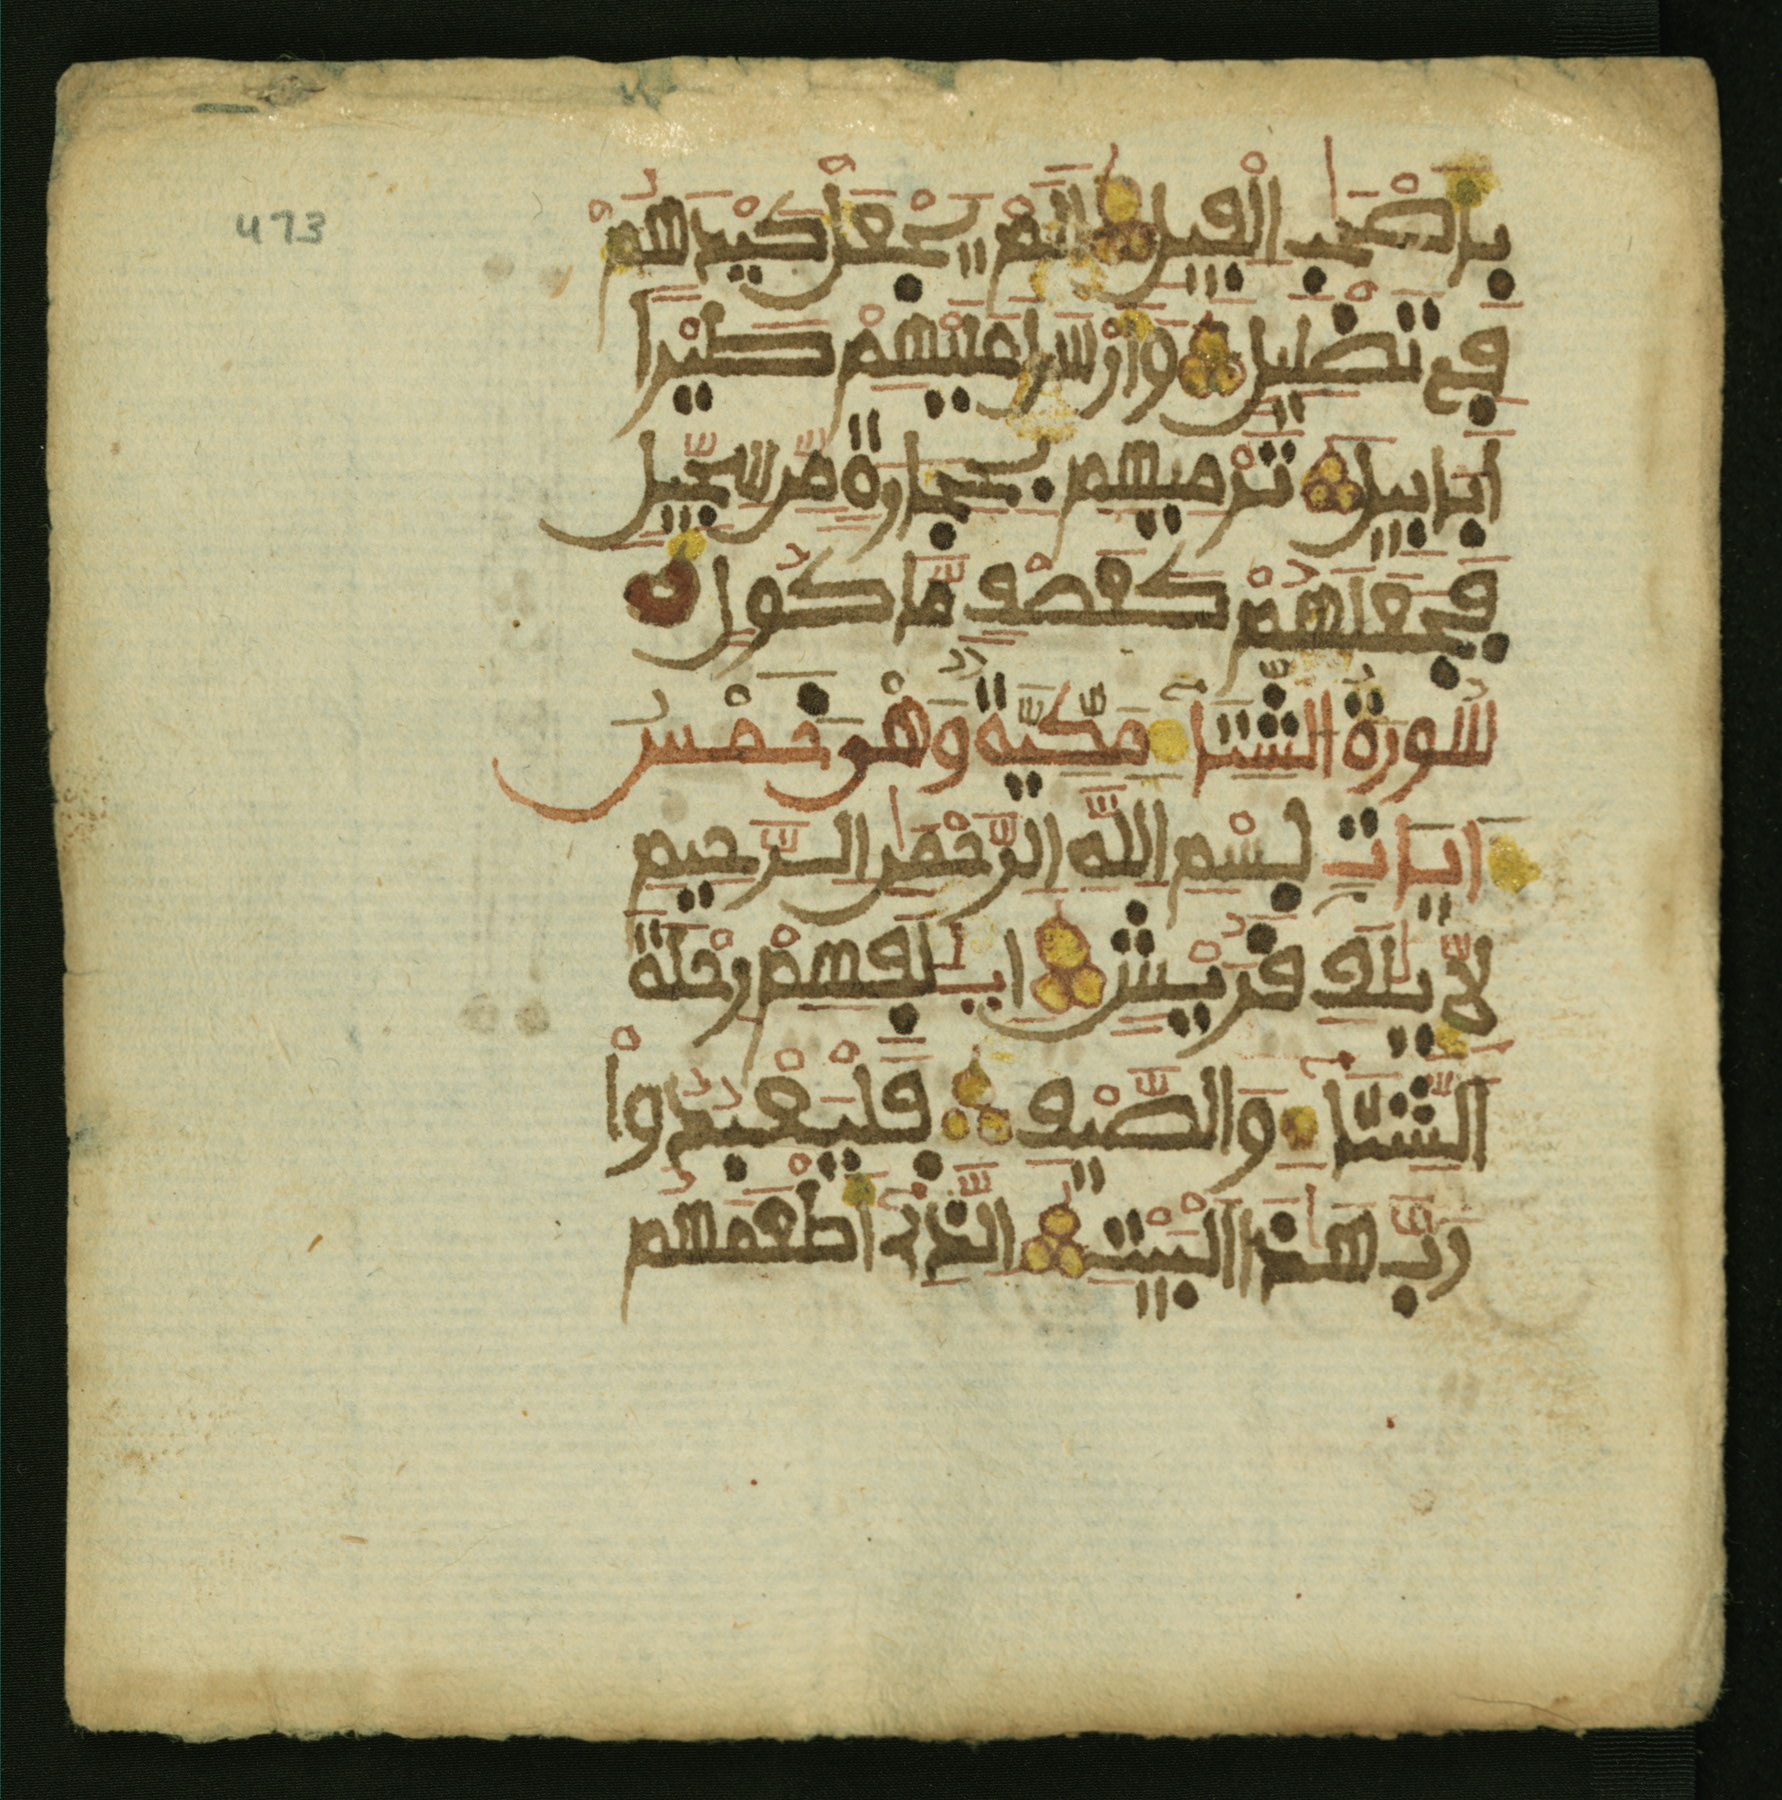 473
بأصحب الفيل ألم يجعل كيدهم
في تضليل وأرسل عليهم طيرا
أبابيل ترميهم بحجارة من سجيل
فجعلهم كعصف مأكول
سورة الشتاء مكية وهو خمس
ءايات بسم الله الرحمن الرحيم
لإيلف قريش إيلفهم رحلة
الشتاء والصيف فليعبدوا
رب هذا البيت الذي أطعمهم